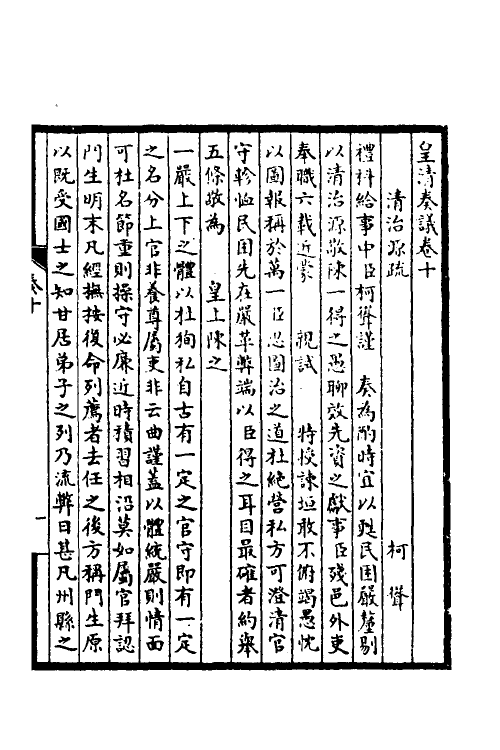 皇清奏議卷十
清治源疏 柯聳
禮科給事中臣柯聳謹 奏為酌時宜以甦民困嚴釐剔
以清治源敬陳一得之愚聊效先資之獻事臣殘邑外吏
奉職六載近蒙 親試 特授諫垣敢不俯竭愚忱
以圖報稱於萬一臣思圖治之道杜絶營私方可澄清官
守軫恤民困先在嚴革弊端以臣得之耳目最確者約舉
五條敬為 皇上陳之
一嚴上下之體以杜狥私自古有一定之官守即有一定
之名分上官非養尊屬吏非云曲謹蓋以體統嚴則情面
可杜名節重則操守必廉近時積習相沿莫如屬官拜認
門生明末凡經撫按復命列薦者去任之後方稱門生原
以既受國士之知甘居弟子之列乃流弊日甚凡州縣之
卷十
一